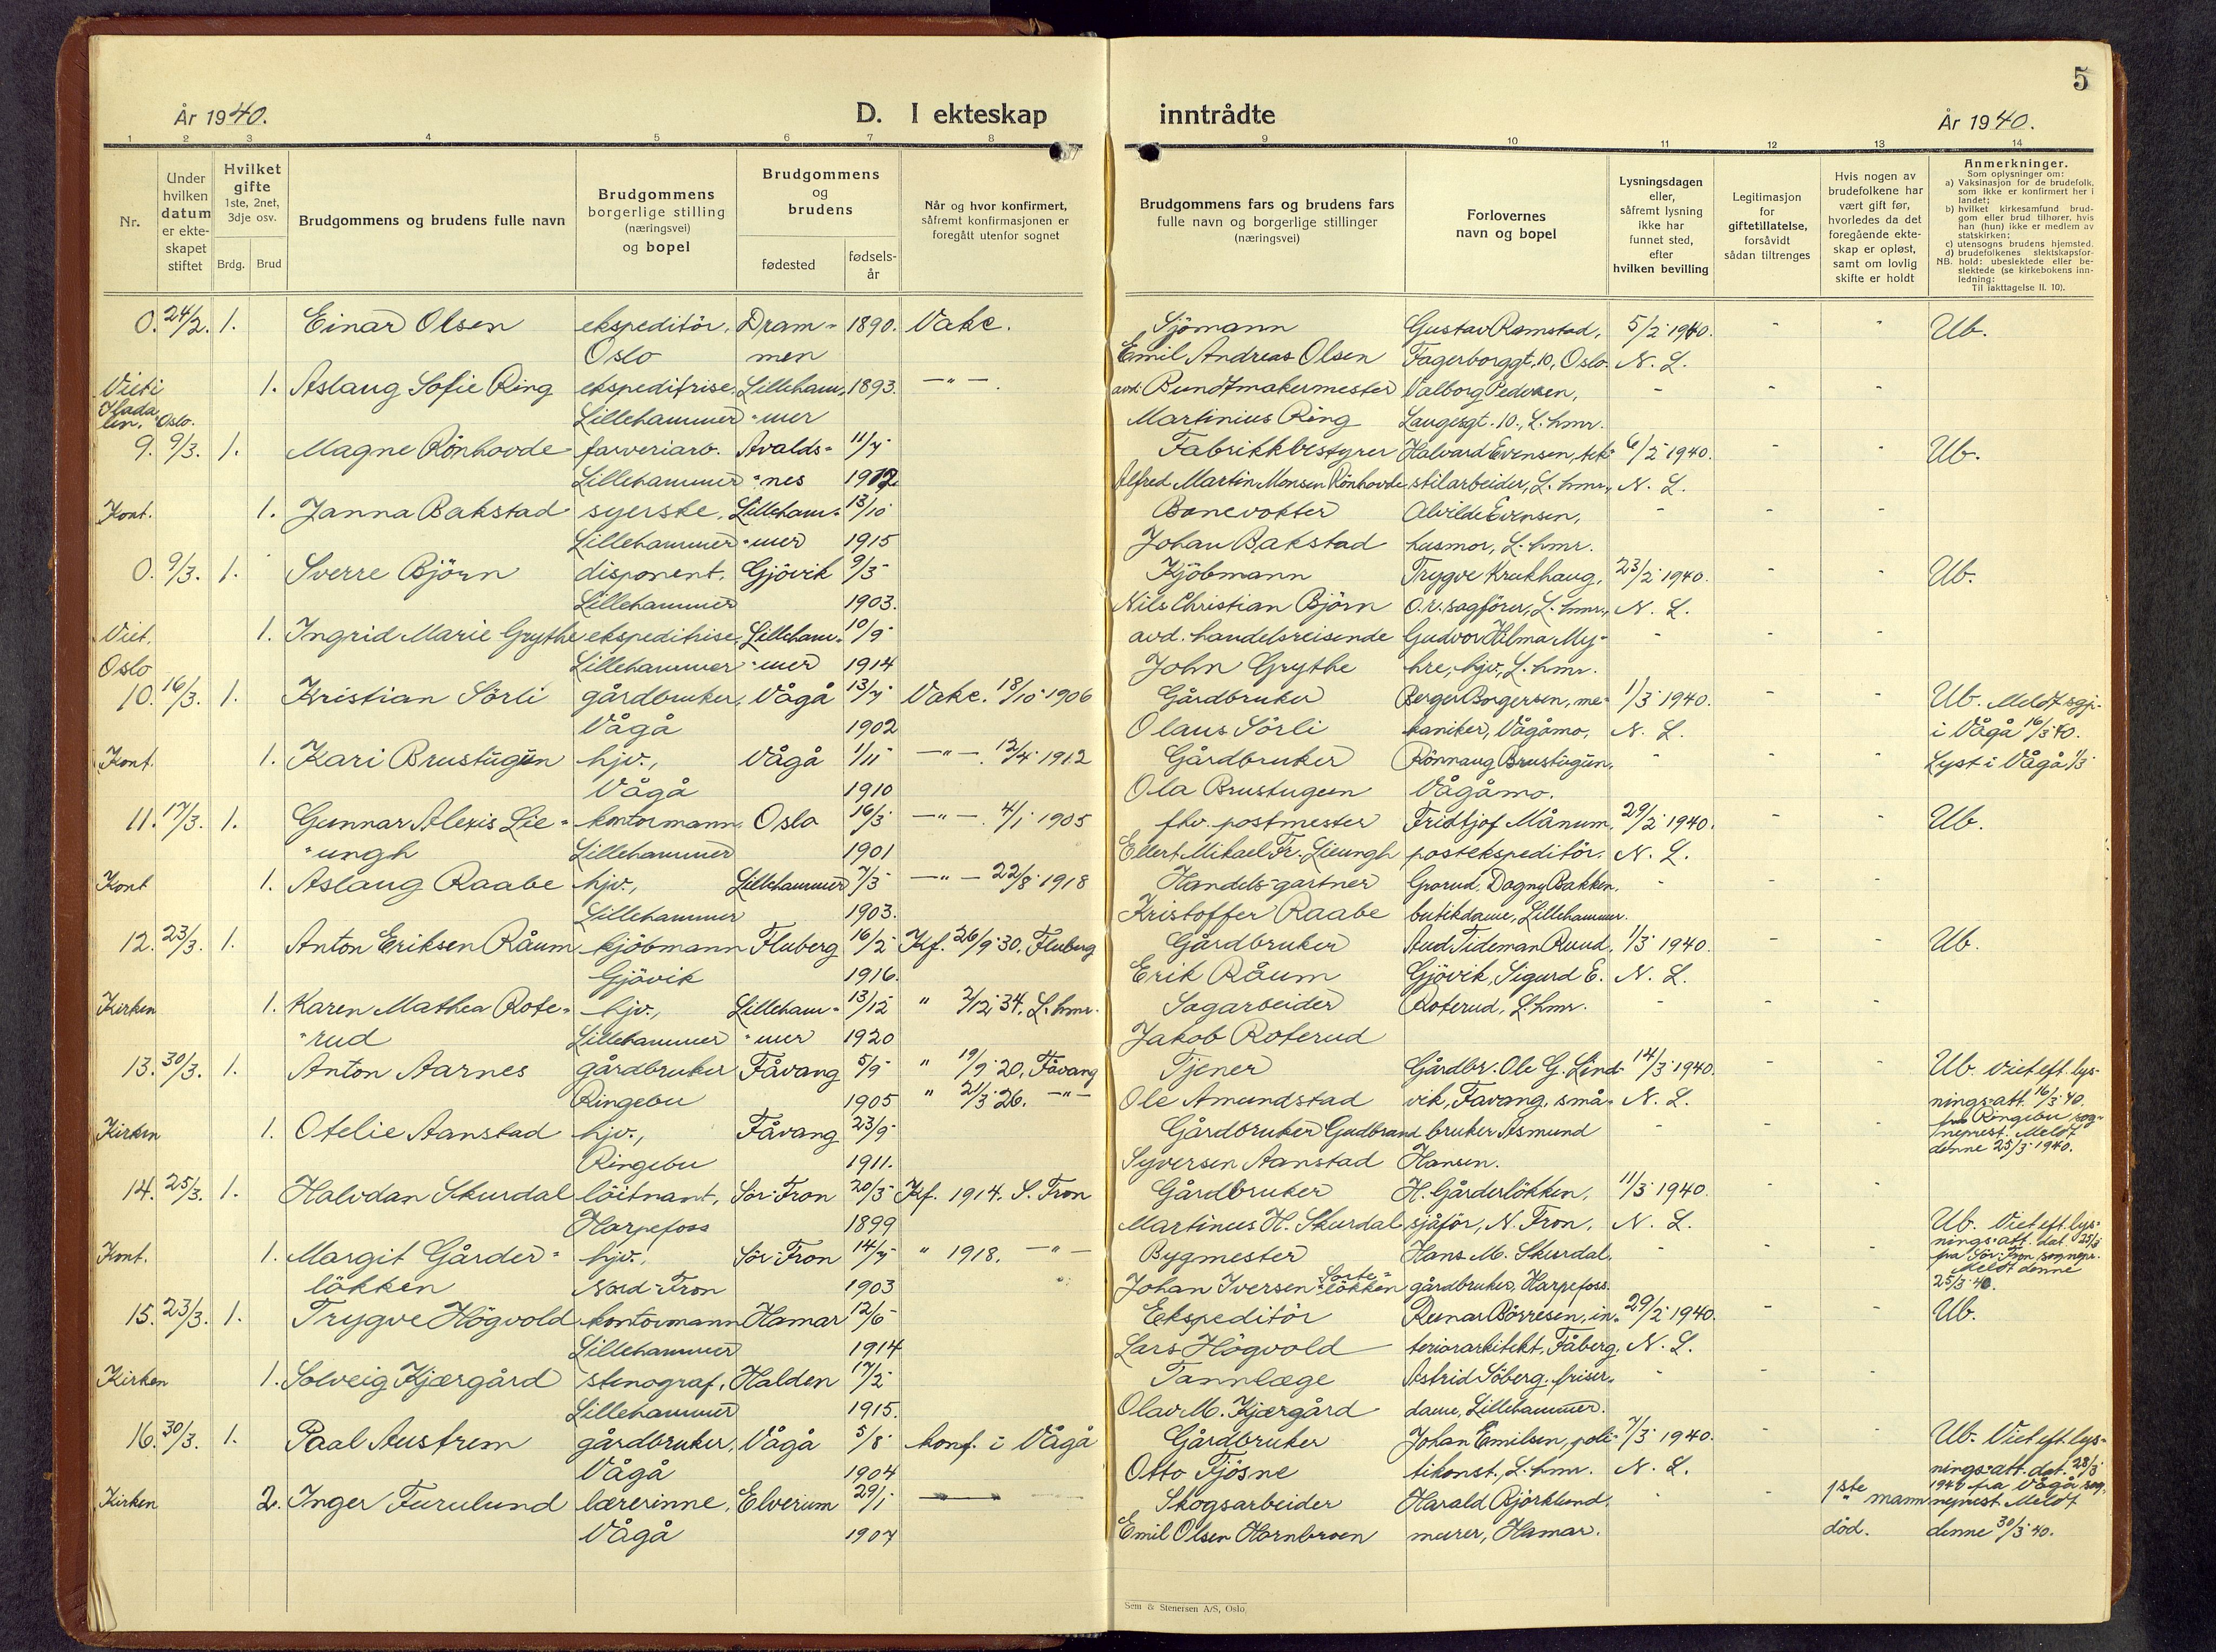 5
År 1940.
D. I ekteskap
inntrådte
År 1940.
1 2 3 4 5 6 7 8
9 10 11 12 13 14
Nr.
Under hvilken datum er ekteskapet stiftet
Hvilket gifte 1ste, 2net, 3dje osv.
Brdg. Brud
Brudgommens og brudens fulle navn
Brudgommens borgerlige stilling (næringsvei) og bopel
Brudgommens og brudens
fødested
fødselsår
Når og hvor konfirmert, såfremt konfirmasjonen er foregått utenfor sognet
Brudgommens fars og brudens fars fulle navn og borgerlige stillinger (næringsvei)
Forlovernes navn og bopel
Lysningsdagen eller, såfremt lysning ikke har funnet sted, efter hvilken bevilling
Legitimasjon for giftetillatelse, forsåvidt sådan tiltrenges
Hvis nogen av brudefolkene har vært gift før, hvorledes da det foregående ekteskap er opløst, samt om lovlig skifte er holdt
Anmerkninger.
Som oplysninger om:
a) Vaksinasjon for de brudefolk, som ikke er konfirmert her i landet;
b) hvilket kirkesamfund brudgom eller brud tilhører, hvis han (hun) ikke er medlem av statskirken;
c) utensogns brudens hjemsted.
d) brudefolkenes slektskapsforhold: ubeslektede eller beslektede (se kirkebokens innledning:
NB.
Til iakttagelse II. 10).
0. 24/2. 1. Einar Olsen ekspeditör, Dram- 1890. Vakc. Sjömann Gustav Ramstad, 5/2 1940. - - Ub.
Oslo men Emil Andreas Olsen Fagerborggt. 10, Oslo. N. L.
Viet i 1. Aslaug Sofie Ring ekspeditrise, Lilleham- 1893. -"-. avd. Bundtmakermester Valborg Pedersen, - - -
Oslo. Lillehammer "mer Martinius Ring Laugesgt. 10, L.hmr.
9. 9/3. 1. Magne Rönhovde farveriarb. Avalds- 11/7 Fabrikkbestyrer Halvard Evensen, tek- 6/2 1940. - - Ub.
Lillehammer "nes 1912 Alfred Martin Monsen Rönhovde stilarbeider, L.hmr., N. L.
Kont. 1. Janna Bakstad syerske, Lilleham- 13/10 Banevokter Alvilde Evensen, - - -
Lillehammer "mer 1915 Johan Bakstad husmor, L.hmr.
0. 9/3. 1. Sverre Björn disponent, Gjövik 9/3 Kjöbmann Trygve Krukhaug, 23/2 1940. - - Ub.
Lillehammer 1903. Nils Christian Björn o.r.sagförer, L.hmr., N. L.
Viet. 1. Ingrid Marie Grythe ekspeditrise, Lilleham- 10/9 avd. handelsreisende Gudvor Hilma My- - - -
Oslo Lillehammer "mer 1914 John Grythe hre, hjv., L.hmr.
10. 16/3. 1. Kristian Sörli gårdbruker, Vågå 13/7 Vakc. 18/10 1906 Gårdbruker Berger Borgersen, me- 1/3 1940. - - Ub. Meldt sgpr.
Vågå 1902 Olaus Sörli kaniker, Vågåmo, N. L. i Vågå 16/3 40.
Kont. 1. Kari Brustugun hjv., Vågå 1/11 -"-. 12/4 1912 Gårdbruker Rönnaug Brustugun, - - - Lyst i Vågå 1/3
Vågå 1910 Ola Brustugun Vågåmo.
11. 17/3. 1. Gunnar Alexis Lie- kontormann, Oslo 16/3 -"-. 4/1 1905 fhv. postmester Fridtjof Månum, 29/2 1940. - - Ub.
"ungh Lillehammer 1901 Ellert Mikael Fr. Lieungh postekspeditör. N. L.
Kont 1. Aslaug Raabe hjv., Lillehammer 7/3 -"- 22/8 1918 Handels-gartner Grorud, Dagny Bakken, - - -
Lillehammer 1903. Kristoffer Raabe butikdame, Lillehammer.
12. 23/3. 1. Anton Eriksen Råum kjöbmann Fluberg 16/2 Kf. 26/9 30, Fluberg Gårdbruker Aud Tideman Ruud, 1/3 1940. - - Ub.
Gjövik 1916. Erik Råum Gjövik, Sigurd E. N. L.
Kirken 1. Karen Mathea Rote- hjv., Lilleham- 13/12 " 2/12 34. L.hmr. Sagarbeider Roterud, L.hmr. - - -
"rud Lillehammer "mer 1920 Jakob Roterud
13. 30/3. 1. Anton Aarnes gårdbruker Fåvang 5/9 " 19/9 20, Fåvang Tjener Gårdbr. Ole G. Lind- 14/3 1940. - - Ub. viet eft. lys-
Ringebu 1905 " 21/3 26. -"- Ole Amundstad vik, Favang, små- N. L. nings-att. 16/3 40.
Kirken 1. Otelie Aanstad hjv., Fåvang 23/9 Gårdbruker Gudbrand bruker Asmund - - - fra Ringebu sog-
neprest. Meldt
Ringebu 1911. Syversen Aanstad Hansen. denne 25/3 1940.
14. 25/3. 1. Halvdan Skurdal löitnant, Sör-Fron 20/3 Kf. 1914. S. Fron Gårdbruker H. Gårderlökken, 11/3 1940. - -
Harpefoss 1899 Martinus H. Skurdal sjåför, N. Fron, N. L. Ub. Viet eft. lys-
Kont. 1. Margit Gårder- hjv., Sör-Fron 14/7 " 1918. -"- Bygmester Hans M. Skurdal, - - - nings-att. dat. 25/3
fra Sör-Fron sognepr.
Meldt denne
lökken Nord-Fron 1903 Johan Iversen Sorte-lökken gårdbruker, Harpefoss. 25/3 40.
15. 23/3. 1. Trygve Högvold kontormann Hamar 12/6 Ekspeditör Reinar Börresen, in- 29/2 1940. - - Ub.
Lillehammer 1914 Lars Högvold teriorarkitekt, Fåberg, N. L.
Kirken 1. Solveig Kjærgård stenograf, Halden 17/2 Tannlæge Astrid Söberg, friser- - - -
Lillehammer 1915. Olav M. Kjærgård dame, Lillehammer.
16. 30/3. 1. Paal Austrem gårdbruker, Vågå 5/8 konf. i Vågå Gårdbruker Johan Emilsen, poli- 7/3 1940. - - Ub. Viet eft. lys-
Vågå 1904 Otto Fjösne tikonst., L.hmr. N. L. nings-att. dat. 28/3
Kirken 2. Inger Furulund lærerinne, Elverum 29/1 Skogsarbeider Harald Björklund, - - 1ste mann 1940 fra Vågå sog-
neprest. Meldt
Vågå 1907 Emil Olsen Hornbroen murer, Hamar. död. denne 30/3 40.
Sem & Stenersen A/S, Oslo.